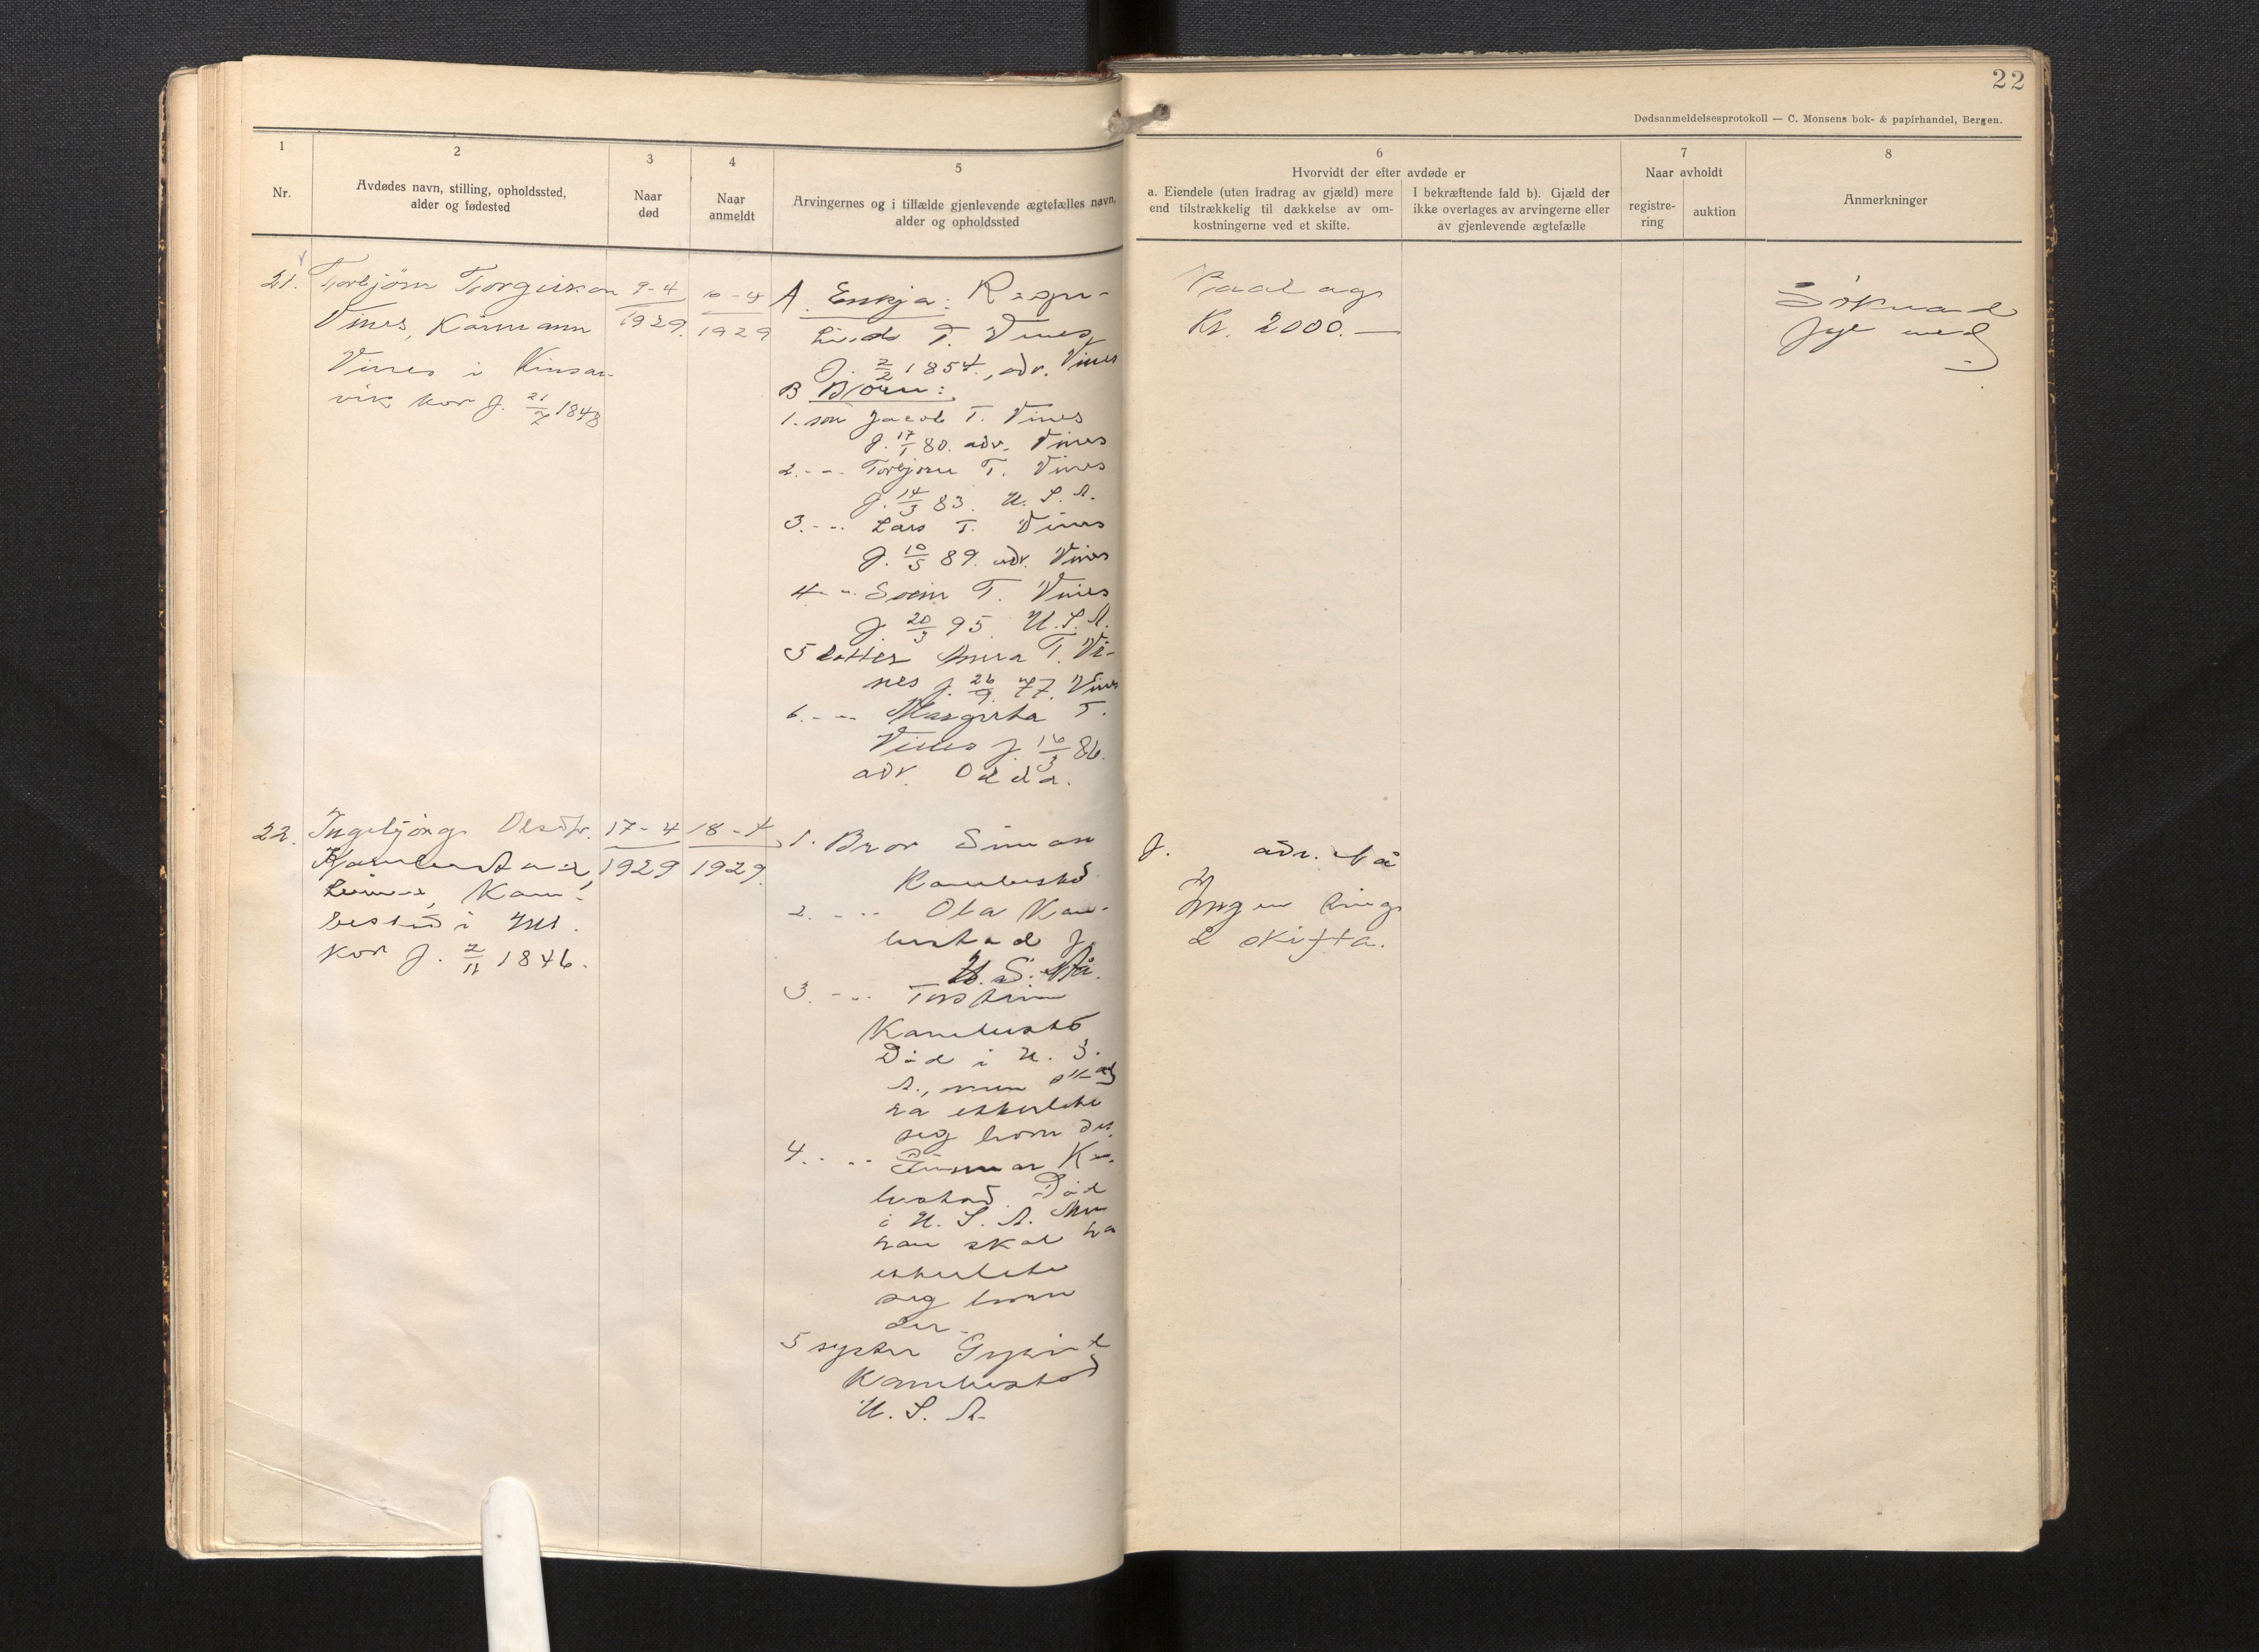 22
Dødsanmeldelsesprotokoll — C. Monsens bok- & papirhandel, Bergen.
1
Nr.
2
Avdødes navn, stilling, opholdssted,
alder og fødested
3
Naar
død
4
Naar
anmeldt
5
Arvingernes og i tilfælde gjenlevende ægtefælles navn,
alder og opholdssted
6
Hvorvidt der efter avdøde er
a. Eiendele (uten fradrag av gjæld) mere
end tilstrækkelig til dækkelse av om-
kostningerne ved et skifte.
I bekræftende fald b). Gjæld der
ikke overtages av arvingerne eller
av gjenlevende ægtefælle
7
Naar avholdt
registre-
ring
auktion
8
Anmerkninger
21.
Torbjörn Torgilson
Vines, Kårmann
Vines i Kinsar-
vik kor f. 21/7 1848
9-4
1929.
10-4
1929
A. Enkja: Ragn-
hild T. Vines
f. 2/2 1854., adr. Vines
B Born:
1. son Jacob T. Vines
f. 17/1 80. adr. Vines
2. - " - Torbjørn T. Vines
f. 14/3 83. U. S. A.
3. - " - Lars T. Vines
f. 10/5 89. adr. Vines
4 - " - Svein T. Vines
f. 20/3 95. U. S. A.
5 dotter Anna T. Vi-
nes f. 26/9 77. Vines
6. - " - Margreta T.
Vines f. 16/3 86.
adr. Odda.
Kr. 2000.—
Söknad
fylgje med
22.
Ingebjörg Olsdtr.
Kambestad
Kam-
bestad i Ull.
kor f. 2/11 1846.
17-4
1929
18-4
1929.
1. Bror Simon
Kambestad
f. adr. Nå
2. - " - Ola Kam-
bestad f.
U. S. A.
Ingen ting
å skifta.
3. - " - Torstein
Kambestad
Död i U. S.
A., men skal
ha etterlete
seg born der.
4. - " - Gunnar Kam-
bestad. Död
i U. S. A. Men
han skal ha
etterlete
seg born
der.
5 syster
Kambestad
U. S. A.